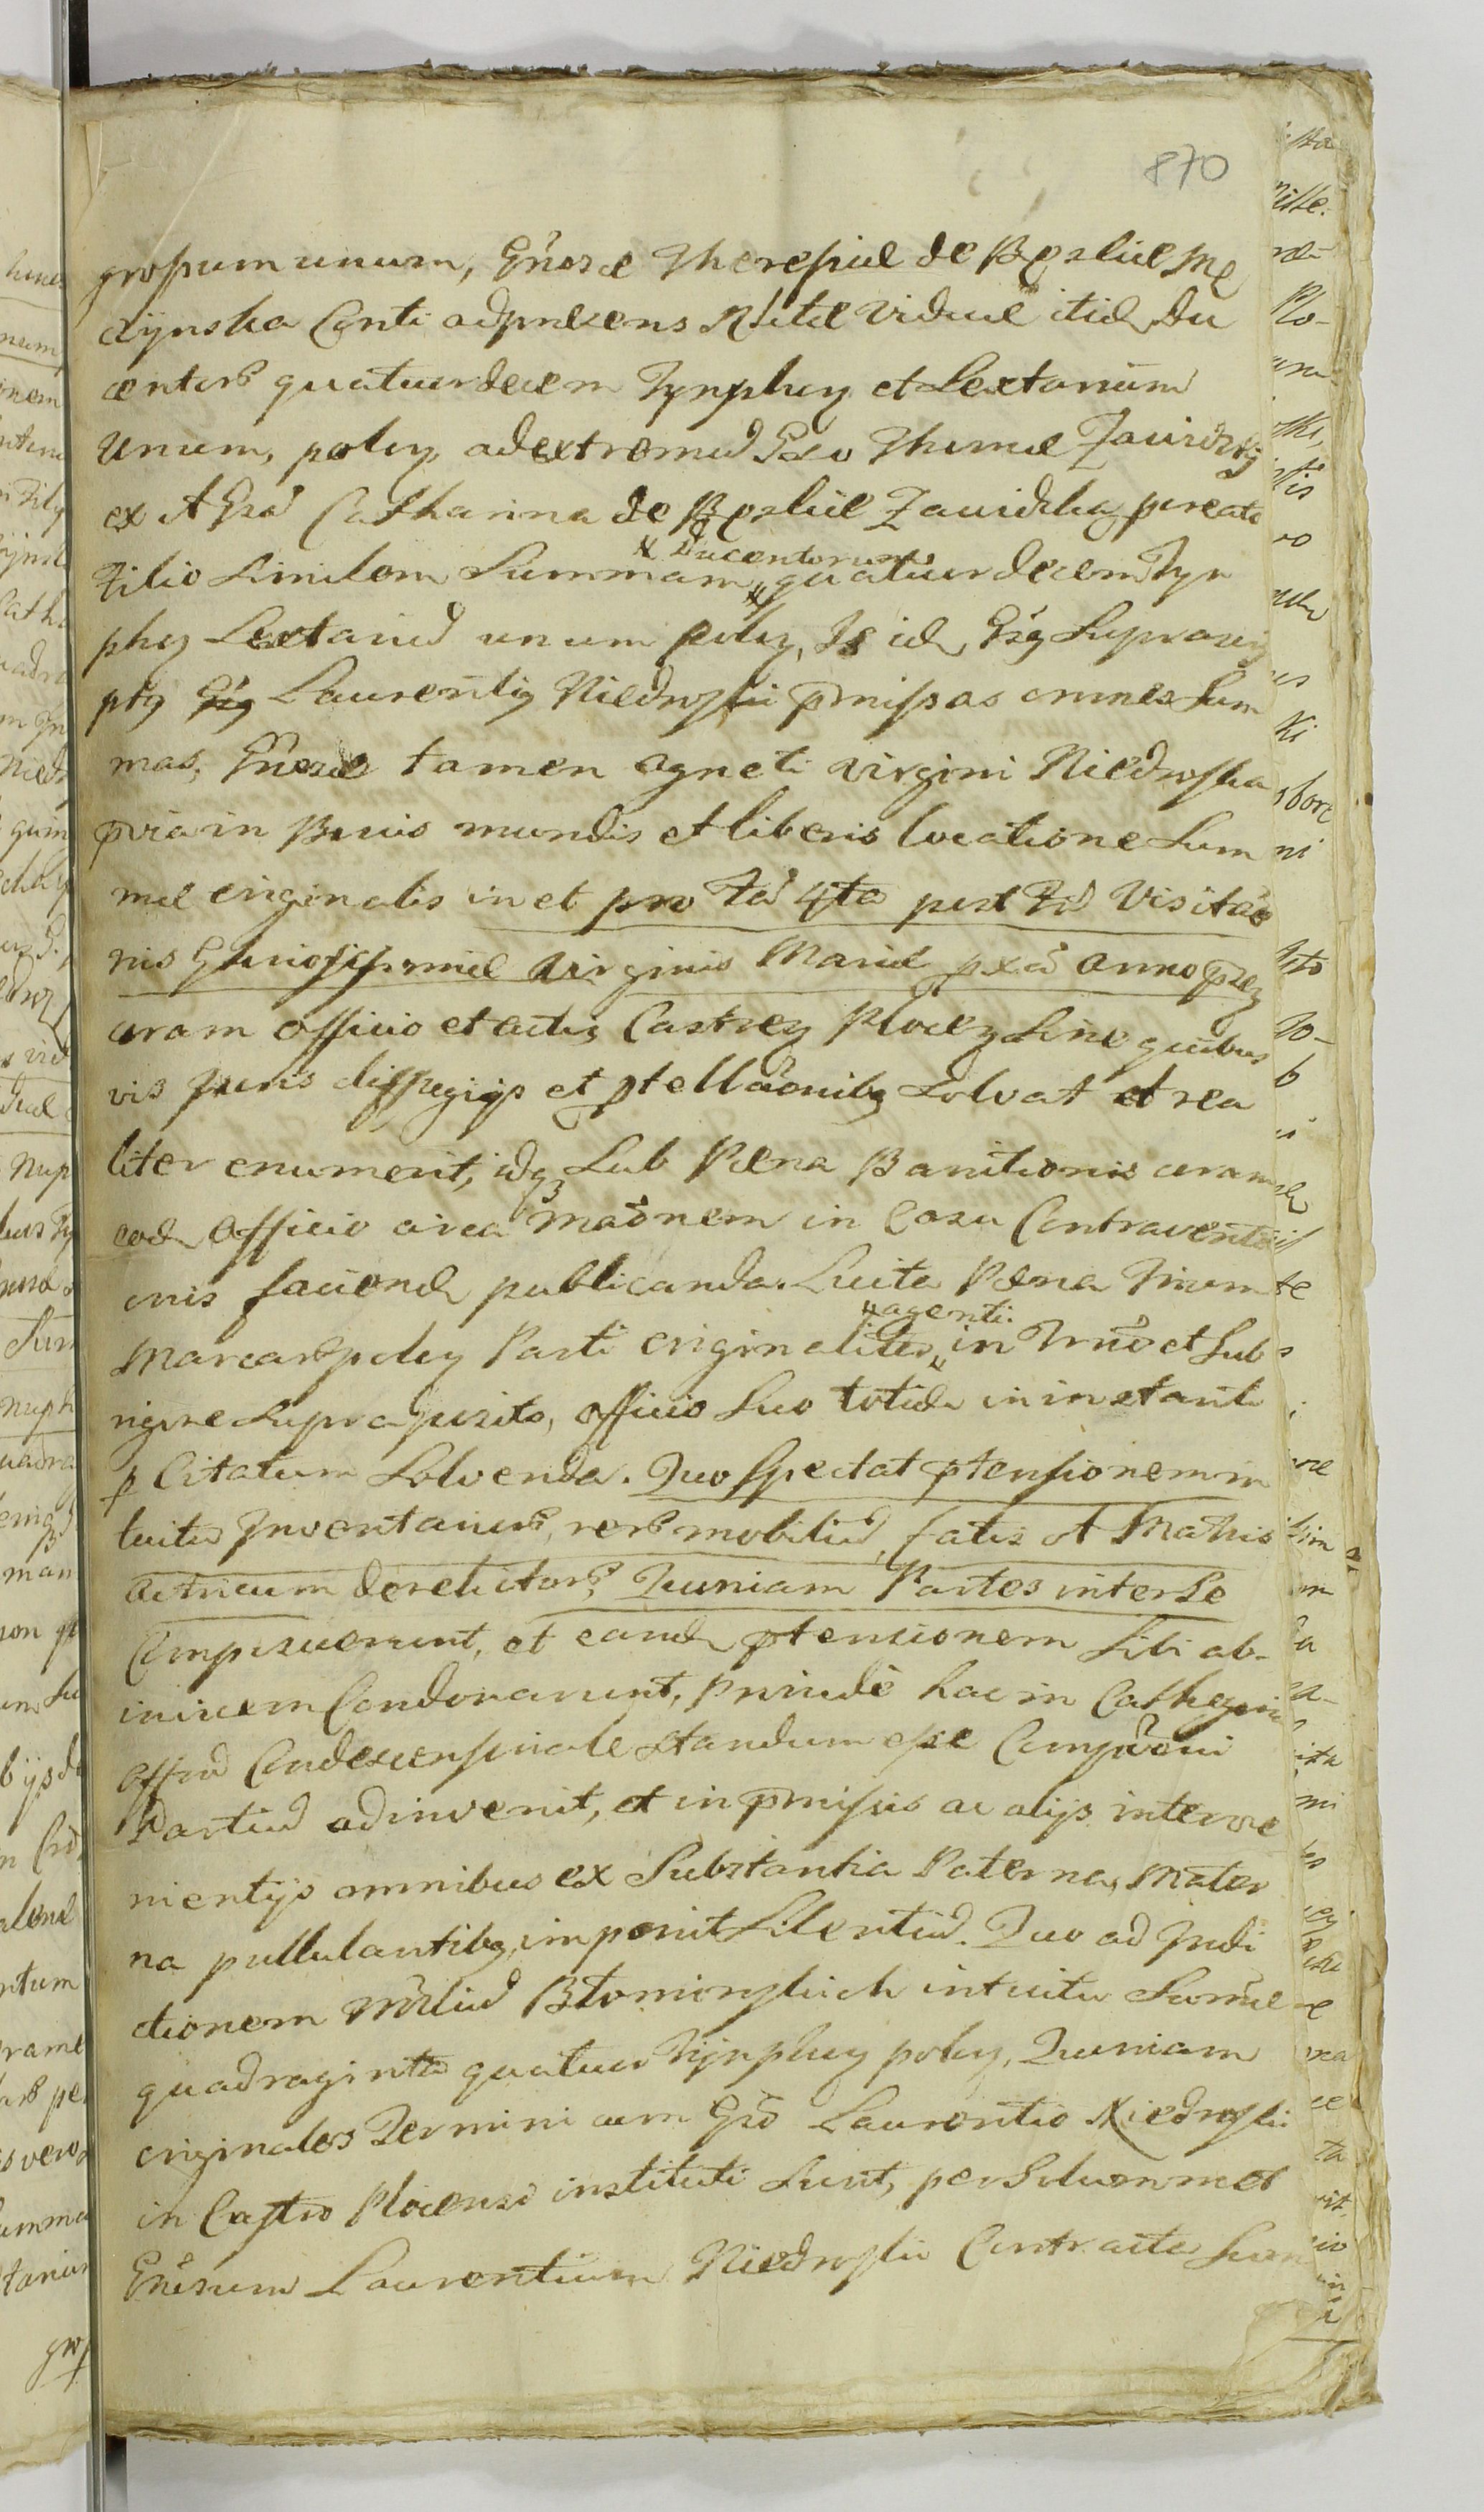 870
grossum unum, Gnosæ Theresiæ de Borskie Me
czynska Conti adpræsens Rlitæ viduæ itid Du
centors quatuordecem Tynphey et Sextarium
Unum, poley, adextremu Gso Thomæ Zawidzky
ex A Gsa Catharina de Borskie Zawidska procreato
Filio similem Summam x Ducentorum quatuordecem Tyn
phey Sextariu unum poley, Is id Gsg Suprascri
ptg Gsg Laurentig Niedroski præmissas omnes Sum
mas, Gnosæ tamen Agneti virgini Niedroska
prvia in Bonis mundis et liberis locatione Sum
mæ originalis in et pro Fa 4ta post Fu Visitao
nis Gloriosissimæ Virginis Mariæ pxa anno prez
coram officio et actis Castrey Plocey sine quibus
vis juris diffugijs et ptellaonibg solvat et rea
liter enumerit, idq3 sub Pæna Banitionis coram
eod Officio circa maonem in Casu Contraventi
onis faciend publicanda. Luita Pæna Trium
Marcars poley Parti originaliter agenti in Trno et sub
rigore supraposito, officio suo totid in instanti
p Citatum solvenda. Quo spectat ptensionem in
tuitu Inventariors, rers mobiliu, fatis A Mathis
Actricum derelictors, Quoniam Partes inter se
Composuerunt, et eand ptensionem sibi ab-
invicem Condonarunt, proinde hac in Cathegoria
Offm Condescensionale standum esse Compoõni
Partiu adinvenit, et in præmissis ac alijs interve
nientijs omnibus ex Substantia Paterna, Mater
na pullulantibg imponit Silentiu. Quo ad Indi
ctionem Mrliu Blominskich intuitu Summæ
quadraginta quatuor Tijnphey poley, Quoniam
originales Termini cum Gso Laurentio Niedroski
in Castro Plocensi instituti sunt, per Solummet
Gnosum Laurentium Niedroski Contracta Sum